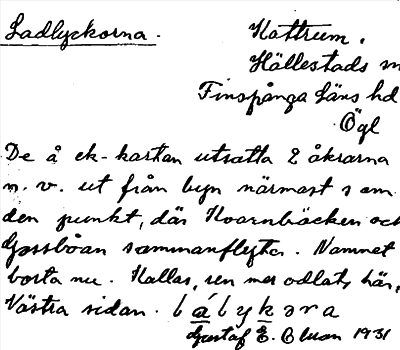 Ladlyckorna. Kattrum.
Hällestads
Finspånga Läns hd
Ögl
De å ek-kartan utsatta 2 åkrarna
n.v. ut från byn närmast som
den punkt, där Kvarnbäcken och
sammanflyter. Namnet
borta nu. Kallas, sen mer odlats här,
Västra sidan.
Gustaf E. Olson 1931